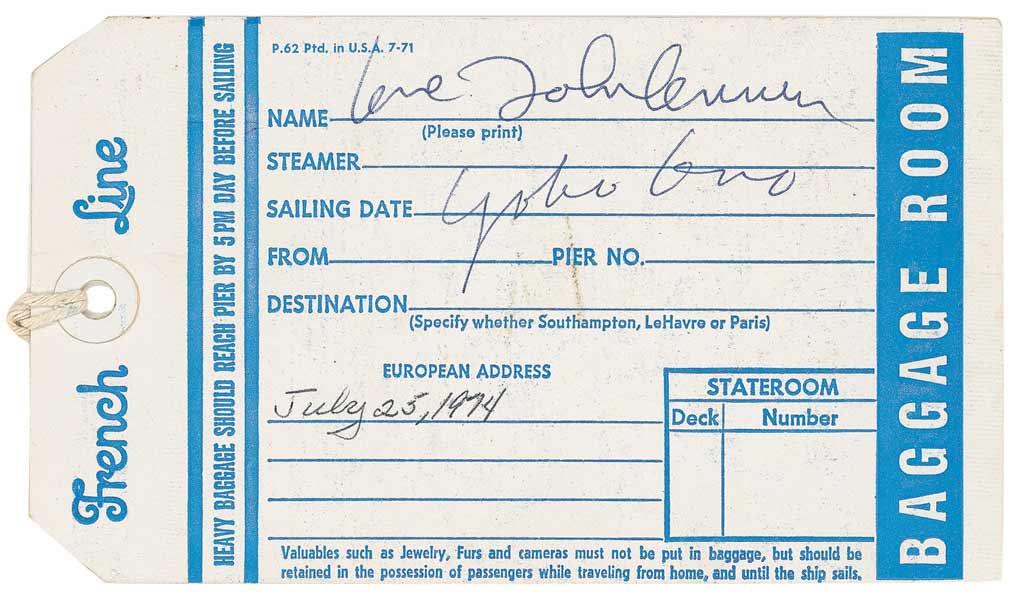 French Line
HEAVY BAGGAGE SHOULD REACH PIER BY 5 PM DAY BEFORE SAILING
P.62 Ptd. in U.S.A. 7-71
NAME love John Lennon
(Please print)
STEAMER
yoko ono
SAILING DATE
FROM PIER NO.
DESTINATION
(Specify whether Southampton, LeHavre or Paris)
EUROPEAN ADDRESS
July 25, 1974
STATEROOM
Deck Number
Valuables such as Jewelry, Furs and cameras must not be put in baggage, but should be
retained in the possession of passengers while traveling from home, and until the ship sails.
BAGGAGE ROOM